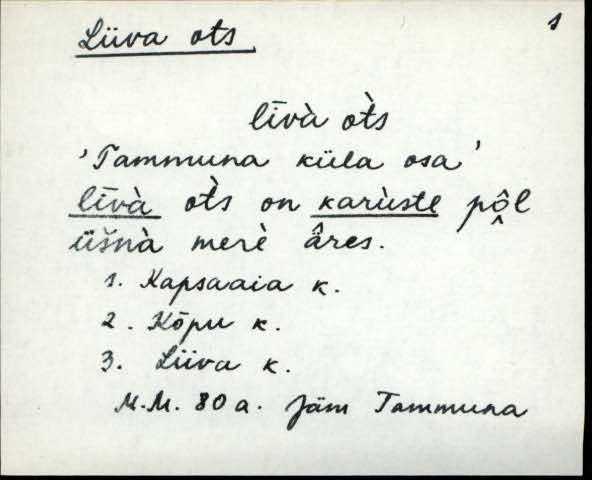 Liiva ots
s
līvà òts
'Tammuna küla osa'
līvà òts on karùste pôl
üšnà merè âres.
1. Kapsaaia k.
2. Kõpu k.
3. Liiva k.
M.M. 80 a. Jäm Tammuna